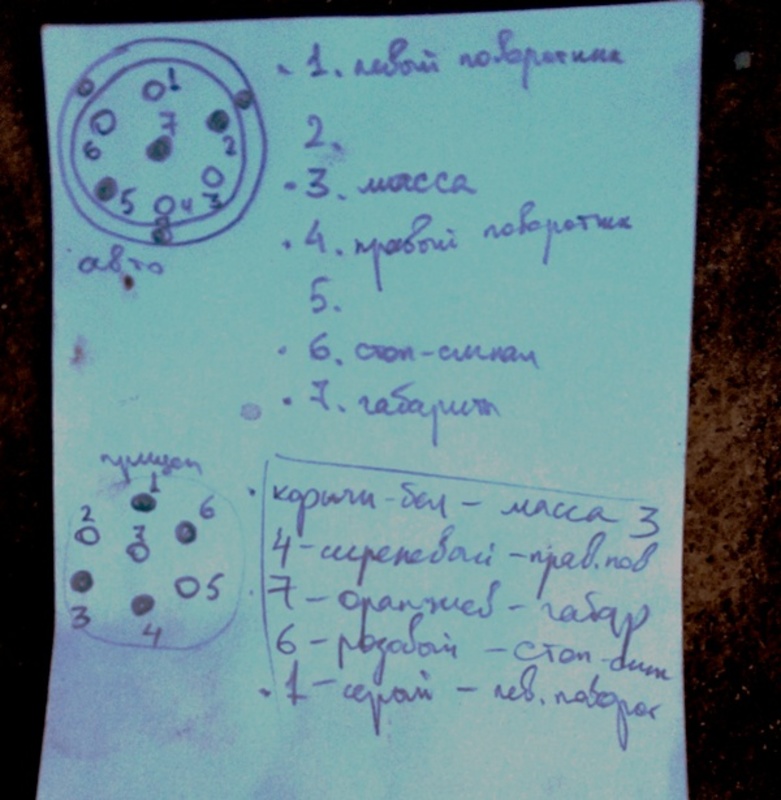 1. левый поворотник
2.
3. масса
4. правый поворотник
5.
6. стоп-сигнал
7. габарит
1
7
2
6
5
4
3
авто
прицеп
1
2
6
3
5
3
4
коричн-бел - масса 3
4 - сиреневый - прав. пов
7 - оранжев - габар
6 - розовый - стоп-сигн
1 - серый - лев. поворот